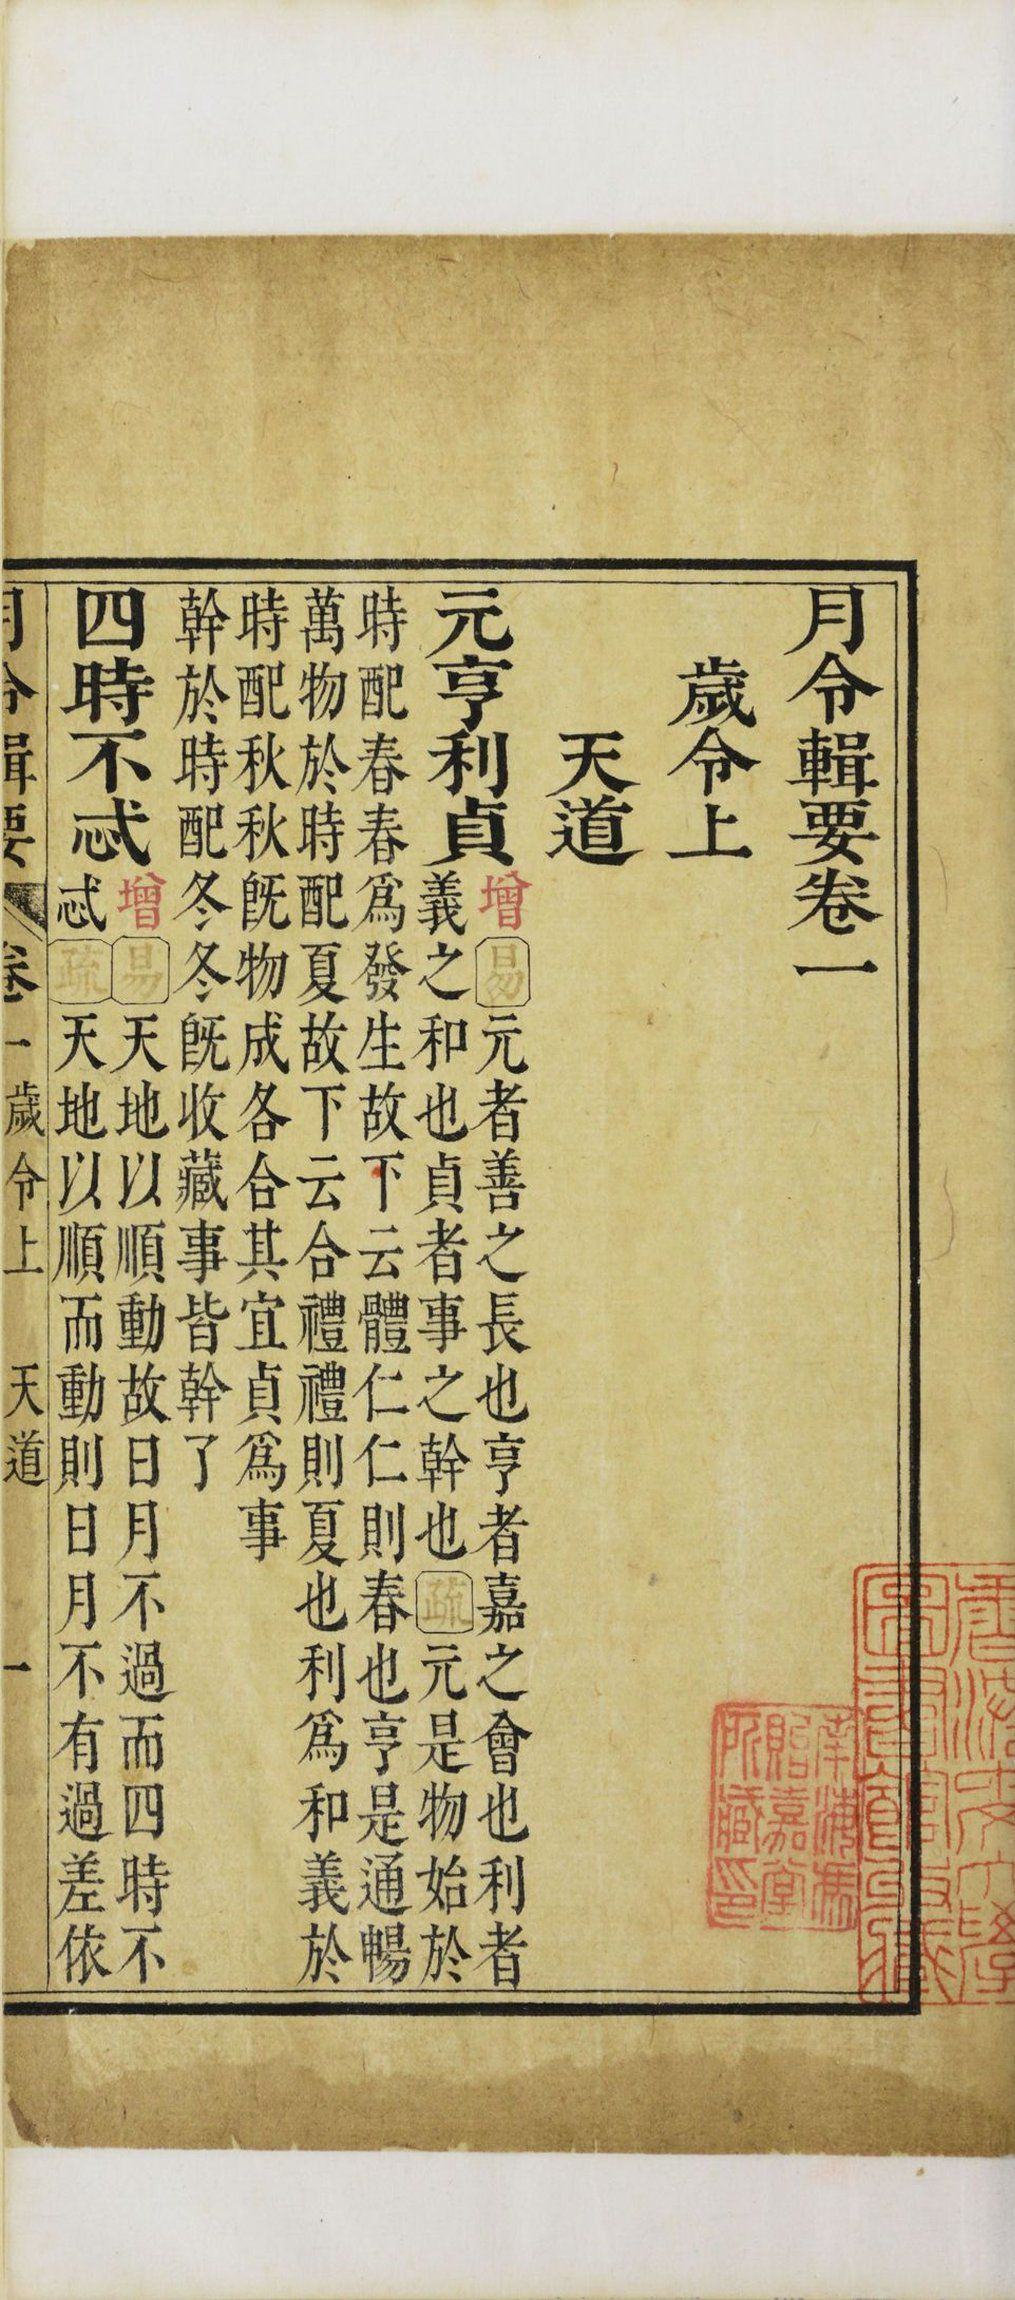 月令輯要卷一
歲令上
天道
元亨利貞
增易元者善之長也亨者嘉之會也利者
義之和也貞者事之幹也疏元是物始於
時配春春爲發生故下云體仁仁則春也亨是通暢
萬物於時配夏故下云合禮禮則夏也利爲和義於
時配秋秋旣物成各合其宜貞爲事
幹於時配冬冬旣收藏事皆幹了
四時不忒
增易天地以順動故日月不過而四時不
忒疏天地以順而動則日月不有過差依
月令輯要 卷一歲令上 天道 一
南潯
貽嘉堂
所藏印